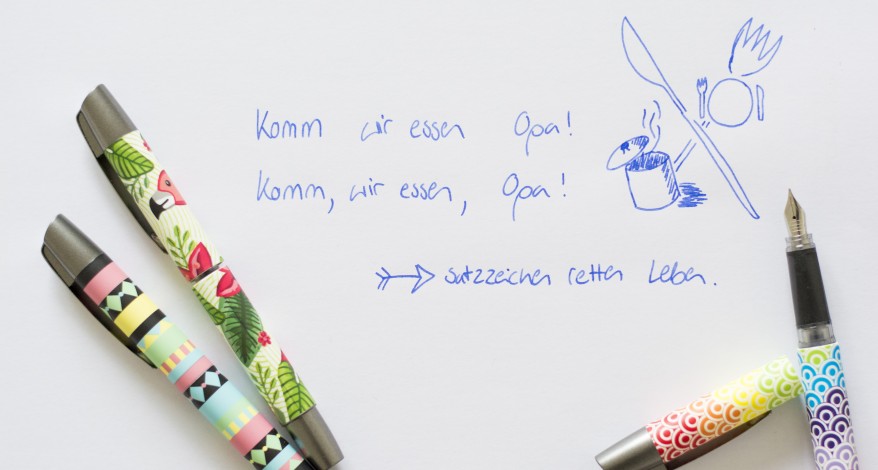 Komm wir essen Opa!
Komm, wir essen, Opa!
satzzeichen retten Leben.